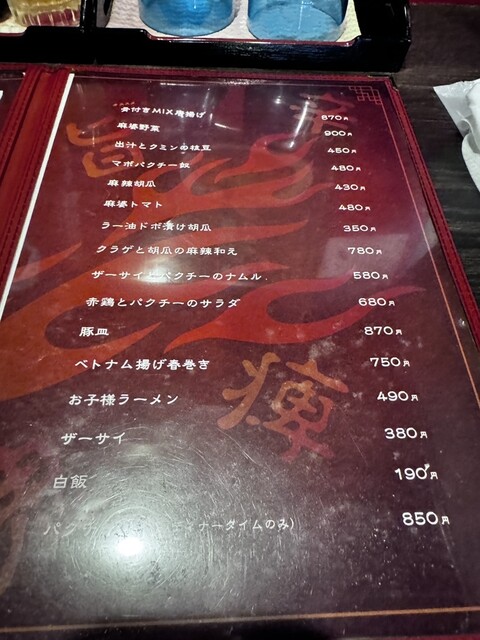 骨付きMIX唐揚げ 870円
麻婆野菜 900円
出汁とクミンの枝豆 450円
マボパクチー飯 480円
麻辣胡瓜 430円
麻婆トマト 480円
ラー油ドボ漬け胡瓜 350円
クラゲと胡瓜の麻辣和え 780円
ザーサイとパクチーのナムル. 580円
赤鶏とパクチーのサラダ 680円
豚皿 870円
ベトナム揚げ春巻き 750円
お子様ラーメン 490円
ザーサイ 380円
白飯 190円
パク ナータイムのみ) 850円
旨
痺